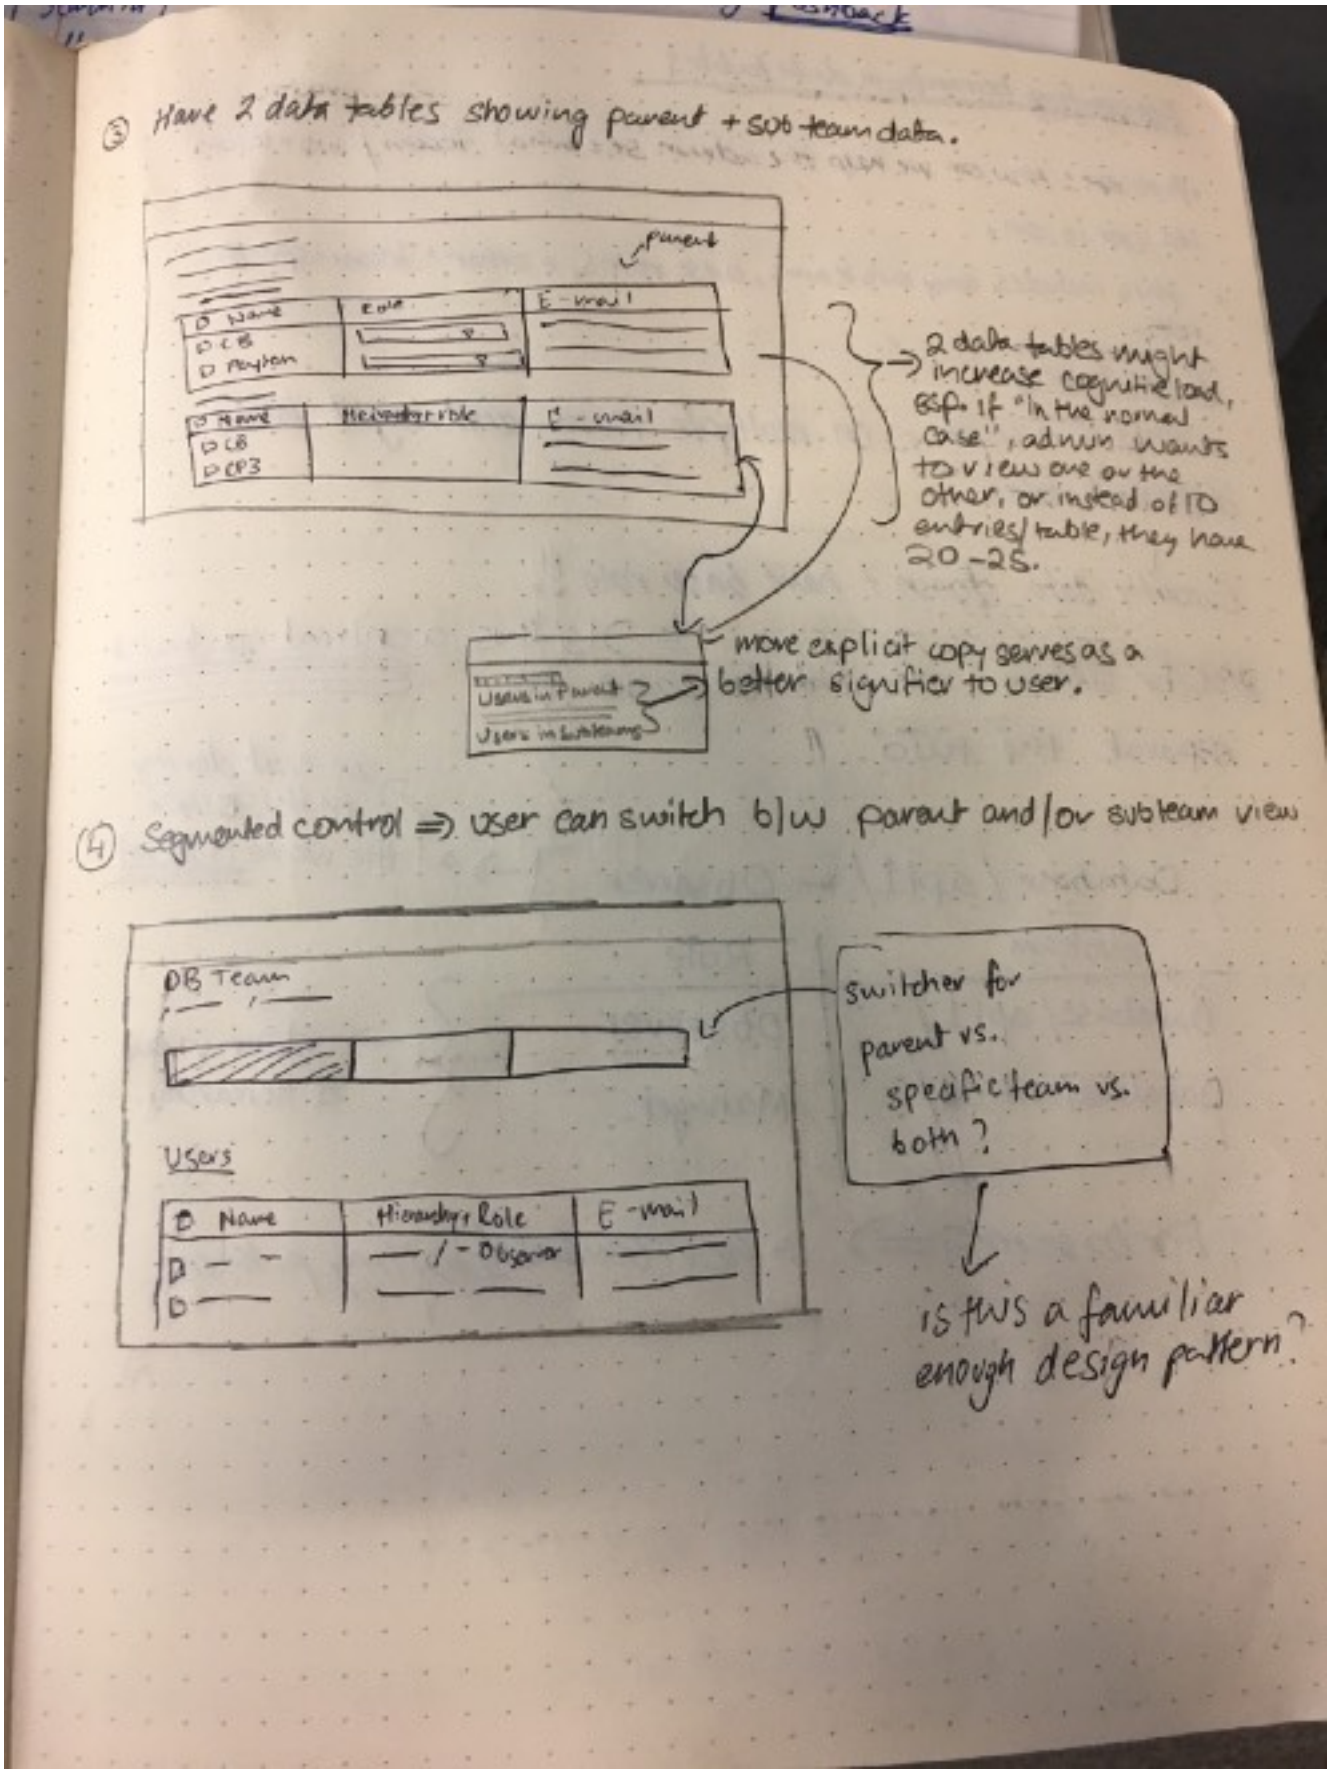 Pushback
③ Have 2 data tables showing parent + sub team data.
parent
Name Role E-mail
CB
Payton
Name Hierarchy+role E-mail
CB
CP3
→ 2 data tables might
increase cognitive load,
esp. if "in the normal
case", admin wants
to view one or the
other, or instead of 10
entries/table, they have
20-25.
Users in Parent
Users in Subteams
more explicit copy serves as a
better signifier to user.
④ Segmented control ⇒ user can switch b/w parent and/or subteam view
DB Team
switcher for
parent vs.
specific team vs.
both?
Users
Name Hierarchy+Role E-mail
/ - Observer
is this a familiar
enough design pattern?